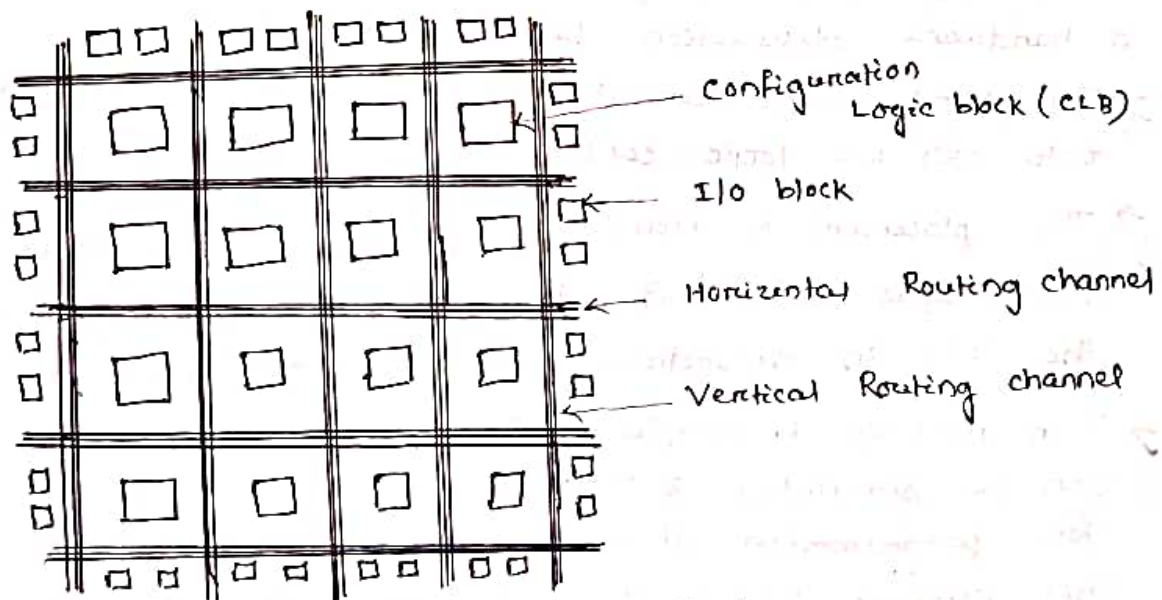 Configuration
Logic block (CLB)
I/O block
Horizental Routing channel
Vertical Routing channel